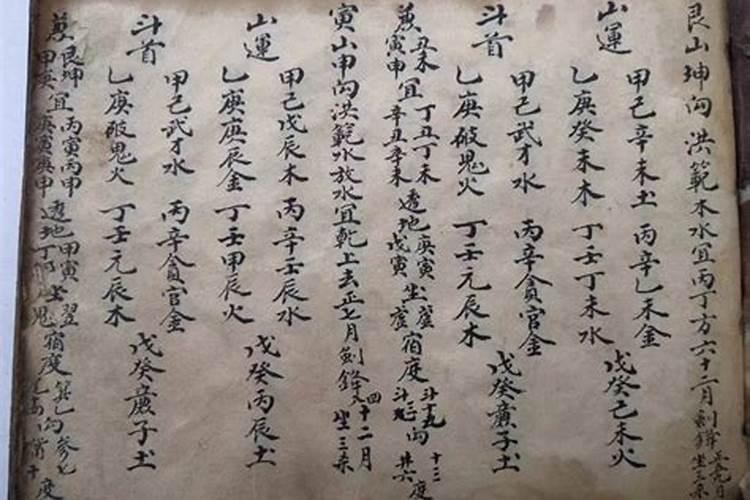 艮山坤向洪範木水宜丙丁方六十二月剑鋒
山運
甲己辛未土丙辛乙未金
乙庚癸未木丁壬丁未水戊癸己未火
斗首
甲己武才水丙辛貪官金
乙庚破鬼火丁壬元辰木戊癸廉子土
兼丑未寅申宜丁丑丁未辛丑辛未透地庚寅戊寅坐宿度向度
寅山申向洪範水放水宜乾上去正七月剑鋒四十二月坐三杀
山運
甲己戊辰木丙辛壬辰水
乙庚庚辰金丁壬甲辰火戊癸丙辰土
斗首
甲己武才水丙辛貪官金
乙庚破鬼火丁壬元辰木戊癸廉子土
兼艮坤甲庚宜丙寅丙申庚寅庚申透地甲寅坐宿度度